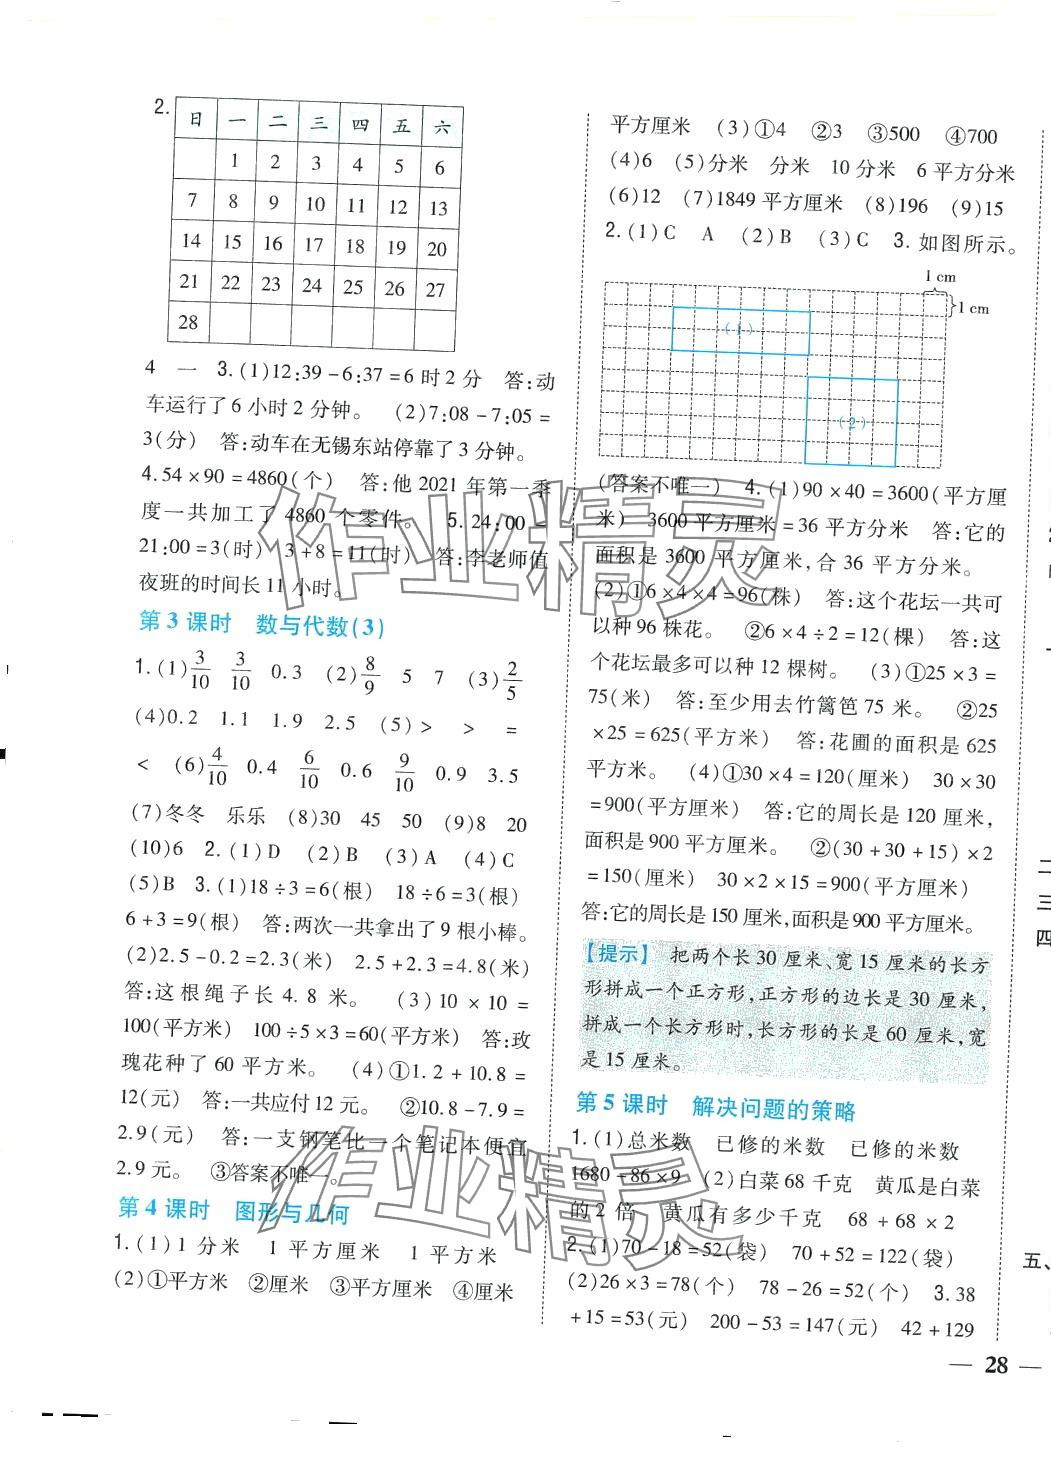 2.
日 一 二 三 四 五 六
1 2 3 4 5 6
7 8 9 10 11 12 13
14 15 16 17 18 19 20
21 22 23 24 25 26 27
28
4 一 3.(1)12:39-6:37=6时2分 答:动
车运行了6小时2分钟。 (2)7:08-7:05=
3(分) 答:动车在无锡东站停靠了3分钟。
4.54×90=4860(个) 答:他2021年第一季
度一共加工了4860个零件。 5.24:00-
21:00=3(时) 3+8=11(时) 答:李老师值
夜班的时间长11小时。
第3课时 数与代数(3)
1.(1)3/10 3/10 0.3 (2)8/9 5 7 (3)2/5
(4)0.2 1.1 1.9 2.5 (5)> > =
< (6)4/10 0.4 6/10 0.6 9/10 0.9 3.5
(7)冬冬 乐乐 (8)30 45 50 (9)8 20
(10)6 2.(1)D (2)B (3)A (4)C
(5)B 3.(1)18÷3=6(根) 18÷6=3(根)
6+3=9(根) 答:两次一共拿出了9根小棒。
(2)2.5-0.2=2.3(米) 2.5+2.3=4.8(米)
答:这根绳子长4.8米。 (3)10×10=
100(平方米) 100÷5×3=60(平方米) 答:玫
瑰花种了60平方米。 (4)①1.2+10.8=
12(元) 答:一共应付12元。 ②10.8-7.9=
2.9(元) 答:一支钢笔比一个笔记本便宜
2.9元。 ③答案不唯一。
第4课时 图形与几何
1.(1)1分米 1平方厘米 1平方米
(2)①平方米 ②厘米 ③平方厘米 ④厘米
平方厘米 (3)①4 ②3 ③500 ④700
(4)6 (5)分米 分米 10分米 6平方分米
(6)12 (7)1849平方厘米 (8)196 (9)15
2.(1)C A (2)B (3)C 3.如图所示。
1 cm
1 cm
(1)
(2)
(答案不唯一) 4.(1)90×40=3600(平方厘
米) 3600平方厘米=36平方分米 答:它的
面积是3600平方厘米,合36平方分米。
(2)①6×4×4=96(株) 答:这个花坛一共可
以种96株花。 ②6×4÷2=12(棵) 答:这
个花坛最多可以种12棵树。 (3)①25×3=
75(米) 答:至少用去竹篱笆75米。 ②25
×25=625(平方米) 答:花圃的面积是625
平方米。 (4)①30×4=120(厘米) 30×30
=900(平方厘米) 答:它的周长是120厘米,
面积是900平方厘米。 ②(30+30+15)×2
=150(厘米) 30×2×15=900(平方厘米)
答:它的周长是150厘米,面积是900平方厘米。
【提示】 把两个长30厘米、宽15厘米的长方
形拼成一个正方形,正方形的边长是30厘米,
拼成一个长方形时,长方形的长是60厘米,宽
是15厘米。
第5课时 解决问题的策略
1.(1)总米数 已修的米数 已修的米数
1680-86×9 (2)白菜68千克 黄瓜是白菜
的2倍 黄瓜有多少千克 68+68×2
2.(1)70-18=52(袋) 70+52=122(袋)
(2)26×3=78(个) 78-26=52(个) 3.38
+15=53(元) 200-53=147(元) 42+129
二
三
四
五、
— 28 —
作业精灵
作业精灵